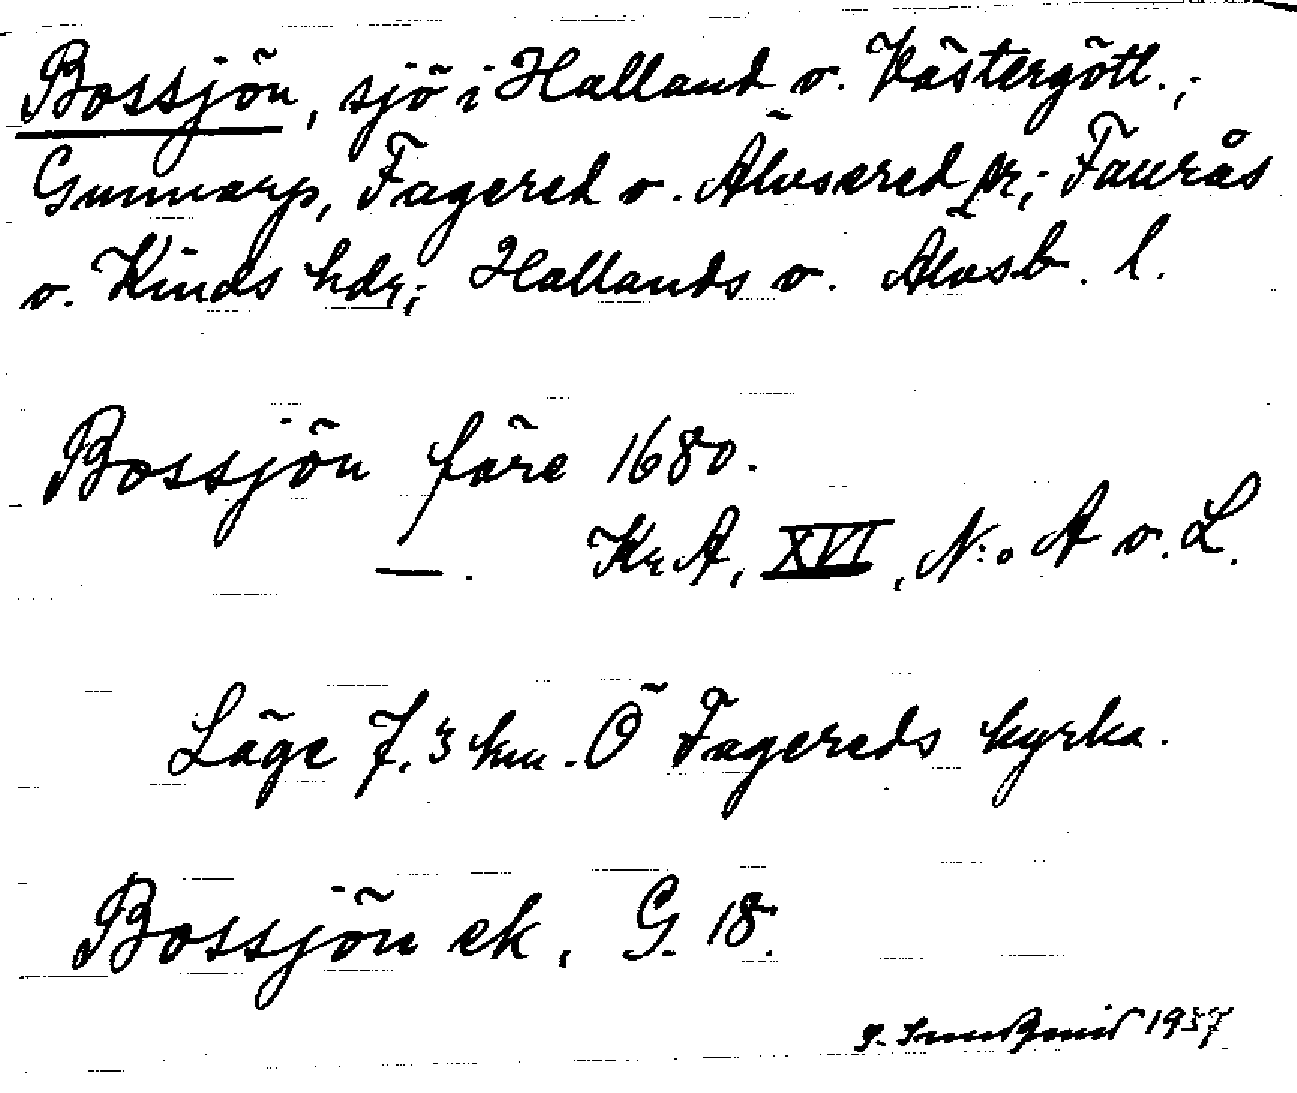 Bossjön, sjö i Halland o. Västergötl.;
Gunnarp, Fagered o. Älvsered sn; Faurås
o. Kinds hdr; Hallands o. Älvsb. l.
Bossjön före 1680.
—. KrA, XVI, N:o A o. L.
Läge 7.3 km. Ö Fagereds kyrka.
Bossjön ek, G. 18.
1957